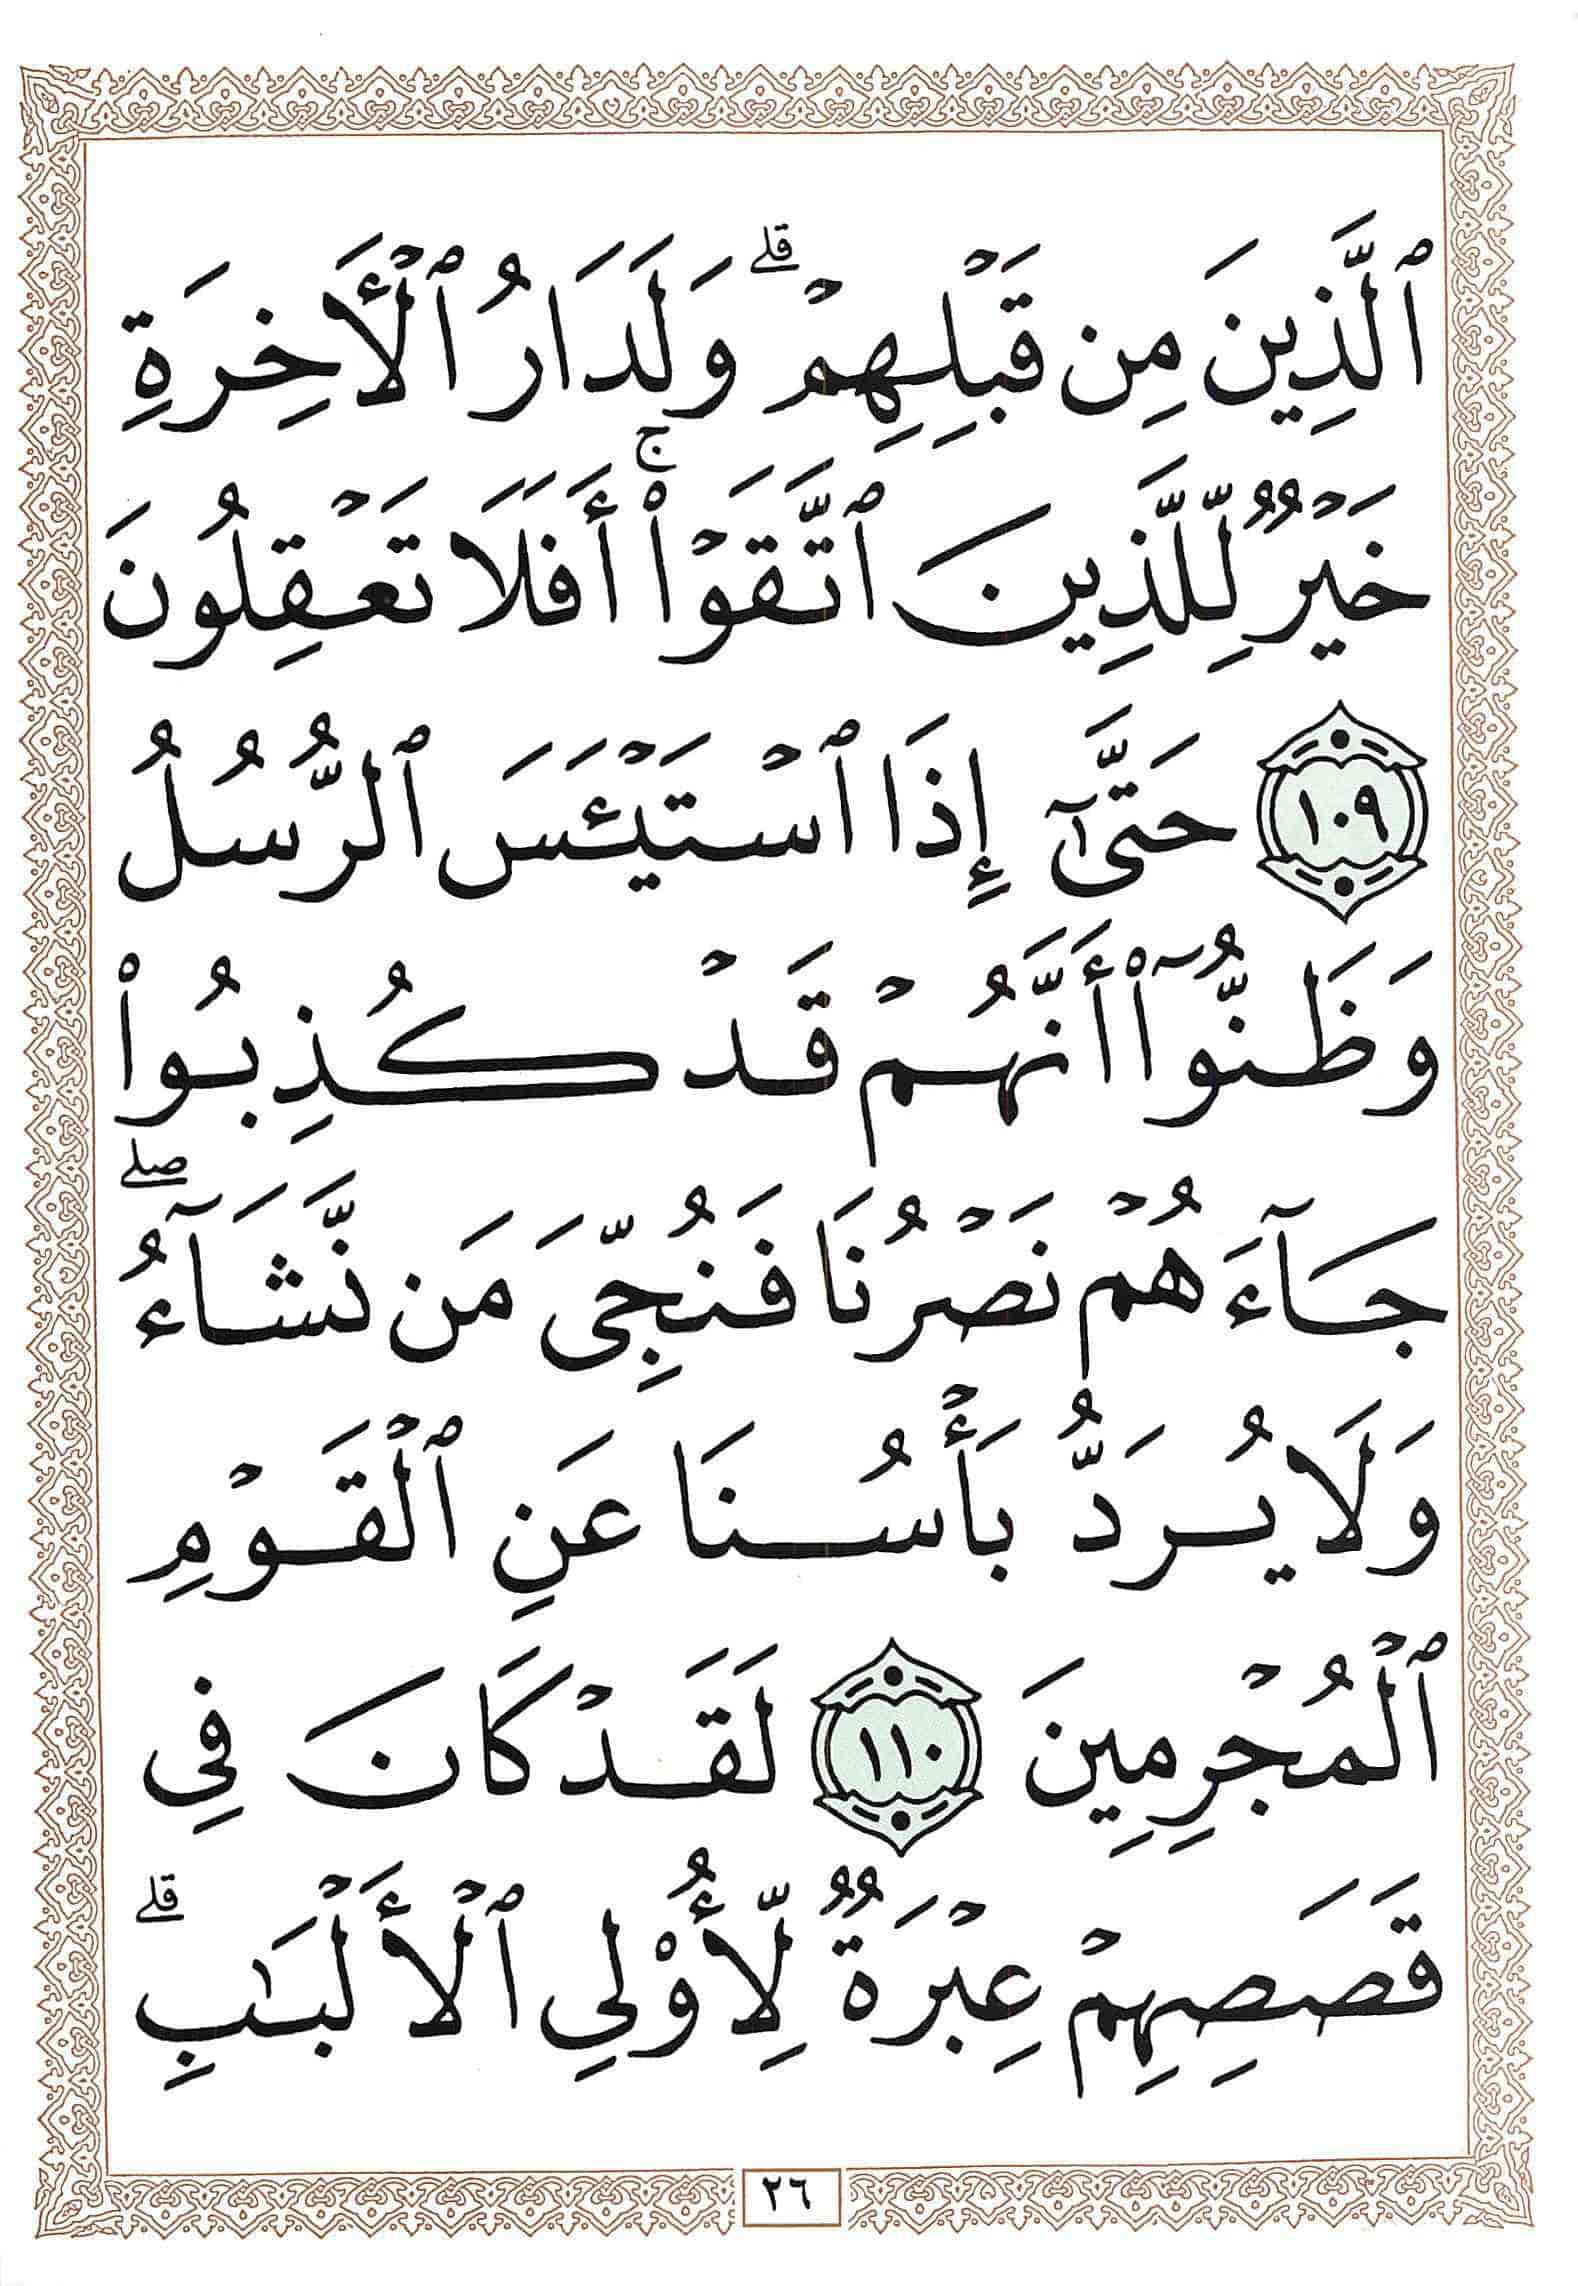 ٱلَّذِينَ مِن قَبْلِهِمْ ۗ وَلَدَارُ ٱلْأَخِرَةِ
خَيْرٌ لِّلَّذِينَ ٱتَّقَوْا۟ ۚ أَفَلَا تَعْقِلُونَ
١٠٩ حَتَّىٰٓ إِذَا ٱسْتَيْـَٔسَ ٱلرُّسُلُ
وَظَنُّوٓا۟ أَنَّهُمْ قَدْ كُذِبُوا۟
جَآءَهُمْ نَصْرُنَا فَنُجِّىَ مَن نَّشَآءُ ۖ
وَلَا يُرَدُّ بَأْسُنَا عَنِ ٱلْقَوْمِ
ٱلْمُجْرِمِينَ ١١٠ لَقَدْ كَانَ فِى
قَصَصِهِمْ عِبْرَةٌ لِّأُو۟لِى ٱلْأَلْبَـٰبِ ۗ
٢٦